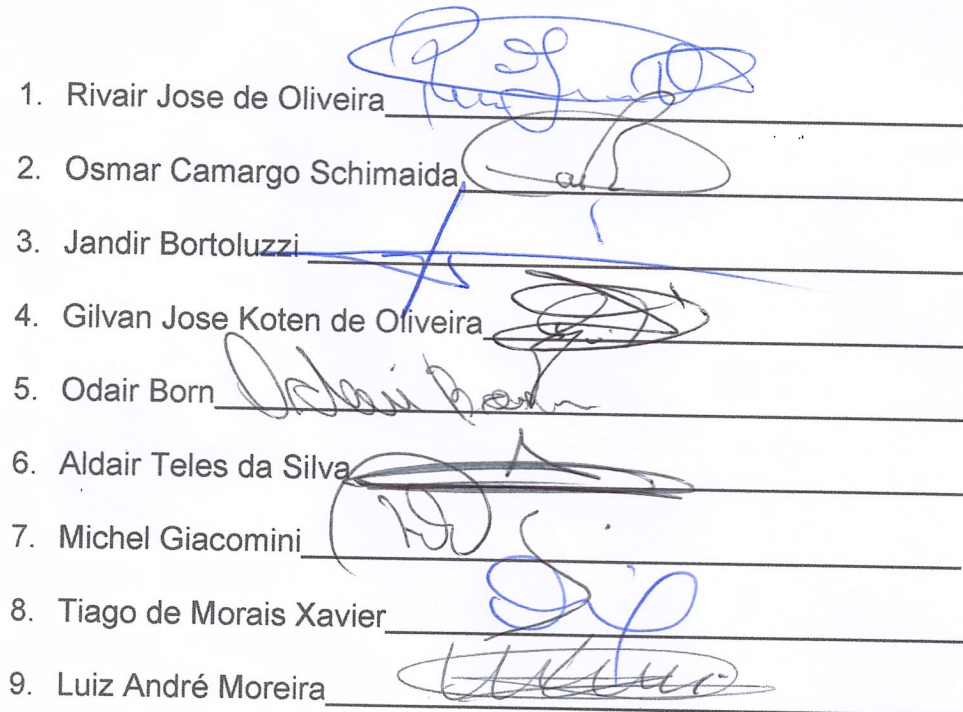 1. Rivair Jose de Oliveira
2. Osmar Camargo Schimaida
3. Jandir Bortoluzzi
4. Gilvan Jose Koten de Oliveira
5. Odair Born Odair Born
6. Aldair Teles da Silva
7. Michel Giacomini
8. Tiago de Morais Xavier
9. Luiz André Moreira